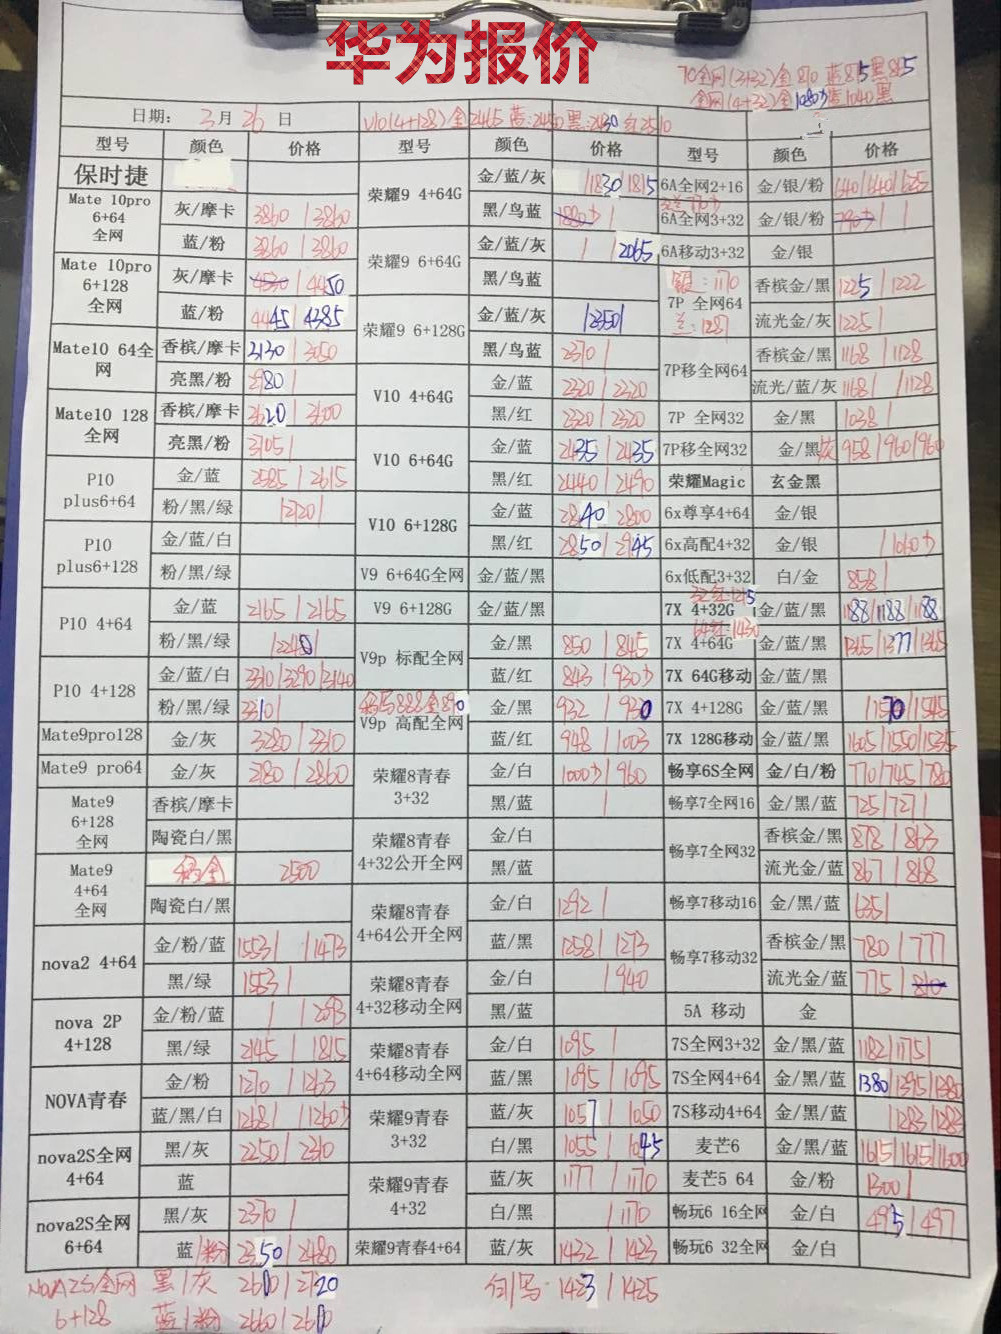 华为报价
70全网(3+32)金810 蓝815黑815
全网(4+32)金1080 蓝1040黑
日期: 3月26日 V10(4+128)金2465 蓝:2450黑:2430红2510
型号 颜色 价格 型号 颜色 价格 型号 颜色 价格
保时捷 荣耀9 4+64G 金/蓝/灰 1830/1815 6A全网2+16 金/银/粉 640/640/625
Mate 10pro 6+64 全网 灰/摩卡 3860/3860 黑/鸟蓝 6A全网3+32 金/银/粉
蓝/粉 3860/3860 荣耀9 6+64G 金/蓝/灰 /2065 6A移动3+32 金/银
Mate 10pro 6+128 全网 灰/摩卡 4450 黑/鸟蓝 7P 全网64 银:1170 兰:1287 香槟金/黑 1225/1222
蓝/粉 4445/4385 荣耀9 6+128G 金/蓝/灰 /2350/ 流光金/灰 1225/
Mate10 64全网 香槟/摩卡 3130/3050 黑/鸟蓝 2370/ 7P移全网64 香槟金/黑 1168/1128
亮黑/粉 2980/ V10 4+64G 金/蓝 2320/2320 流光/蓝/灰 1168/1128
Mate10 128全网 香槟/摩卡 3620/3600 黑/红 2320/2320 7P 全网32 金/黑 1038/
亮黑/粉 3705/ V10 6+64G 金/蓝 2435/2435 7P移全网32 金/黑灰 958/960/960
P10 plus6+64 金/蓝 2585/2615 黑/红 2440/2490 荣耀Magic 玄金黑
粉/黑/绿 /2720/ V10 6+128G 金/蓝 2840/2800 6x尊享4+64 金/银
P10 plus6+128 金/蓝/白 黑/红 2850/2945 6x高配4+32 金/银
粉/黑/绿 V9 6+64G全网 金/蓝/黑 6x低配3+32 白/金 858/
P10 4+64 金/蓝 2165/2165 V9 6+128G 金/蓝/黑 7X 4+32G 32红:1215 金/蓝/黑 1188/1188/1188
粉/黑/绿 /2240/ V9p 标配全网 金/黑 850/845 7X 4+64G 64红:1430 金/蓝/黑 1365/1377/1365
P10 4+128 金/蓝/白 3310/3290/3140 蓝/红 843/930 7X 64G移动 金/蓝/黑
粉/黑/绿 3310/ V9p 高配全网 金/黑 932/930 7X 4+128G 金/蓝/黑 /1570/1545
Mate9pro128 金/灰 3280/3310 蓝/红 948/1003 7X 128G移动 金/蓝/黑 1605/1550/1535
Mate9 pro64 金/灰 2780/2860 荣耀8青春 3+32 金/白 1000/960 畅享6S全网 金/白/粉 770/745/780
Mate9 6+128 全网 香槟/摩卡 黑/蓝 / 畅享7全网16 金/黑/蓝 725/727/
陶瓷白/黑 荣耀8青春 4+32公开全网 金/白 畅享7全网32 香槟金/黑 878/863
Mate9 4+64 全网 2500 黑/蓝 流光金/蓝 867/868
陶瓷白/黑 荣耀8青春 4+64公开全网 金/白 1292/ 畅享7移动16 金/黑/蓝 635/
nova2 4+64 金/粉/蓝 1553/1473 蓝/黑 1258/1273 畅享7移动32 香槟金/黑 780/777
黑/绿 1553/ 荣耀8青春 4+32移动全网 金/白 /940 流光金/蓝 775/
nova 2P 4+128 金/粉/蓝 /2093 黑/蓝 5A 移动 金
黑/绿 2145/1815 荣耀8青春 4+64移动全网 金/白 1095/ 7S全网3+32 金/黑/蓝 1182/1175/
NOVA青春 金/粉 1270/1263 蓝/黑 1095/1095 7S全网4+64 金/黑/蓝 1380/1395/1380
蓝/黑/白 1268/1260 荣耀9青春 3+32 蓝/灰 1057/1050 7S移动4+64 金/黑/蓝 /1283/1283
nova2S全网 4+64 黑/灰 2250/2310 白/黑 1055/1045 麦芒6 金/黑/蓝 1615/1615/1600
蓝 荣耀9青春 4+32 蓝/灰 1177/1170 麦芒5 64 金/粉 1300/
nova2S全网 6+64 黑/灰 2370/ 白/黑 /1170 畅玩6 16全网 金/白 495/497
蓝/粉 2350/2480 荣耀9青春4+64 蓝/灰 1432/1423 畅玩6 32全网 金/白
NOVA2S/全网 黑/灰 2610/2720 白/黑 1423/1425
6+128 蓝/粉 2660/2610